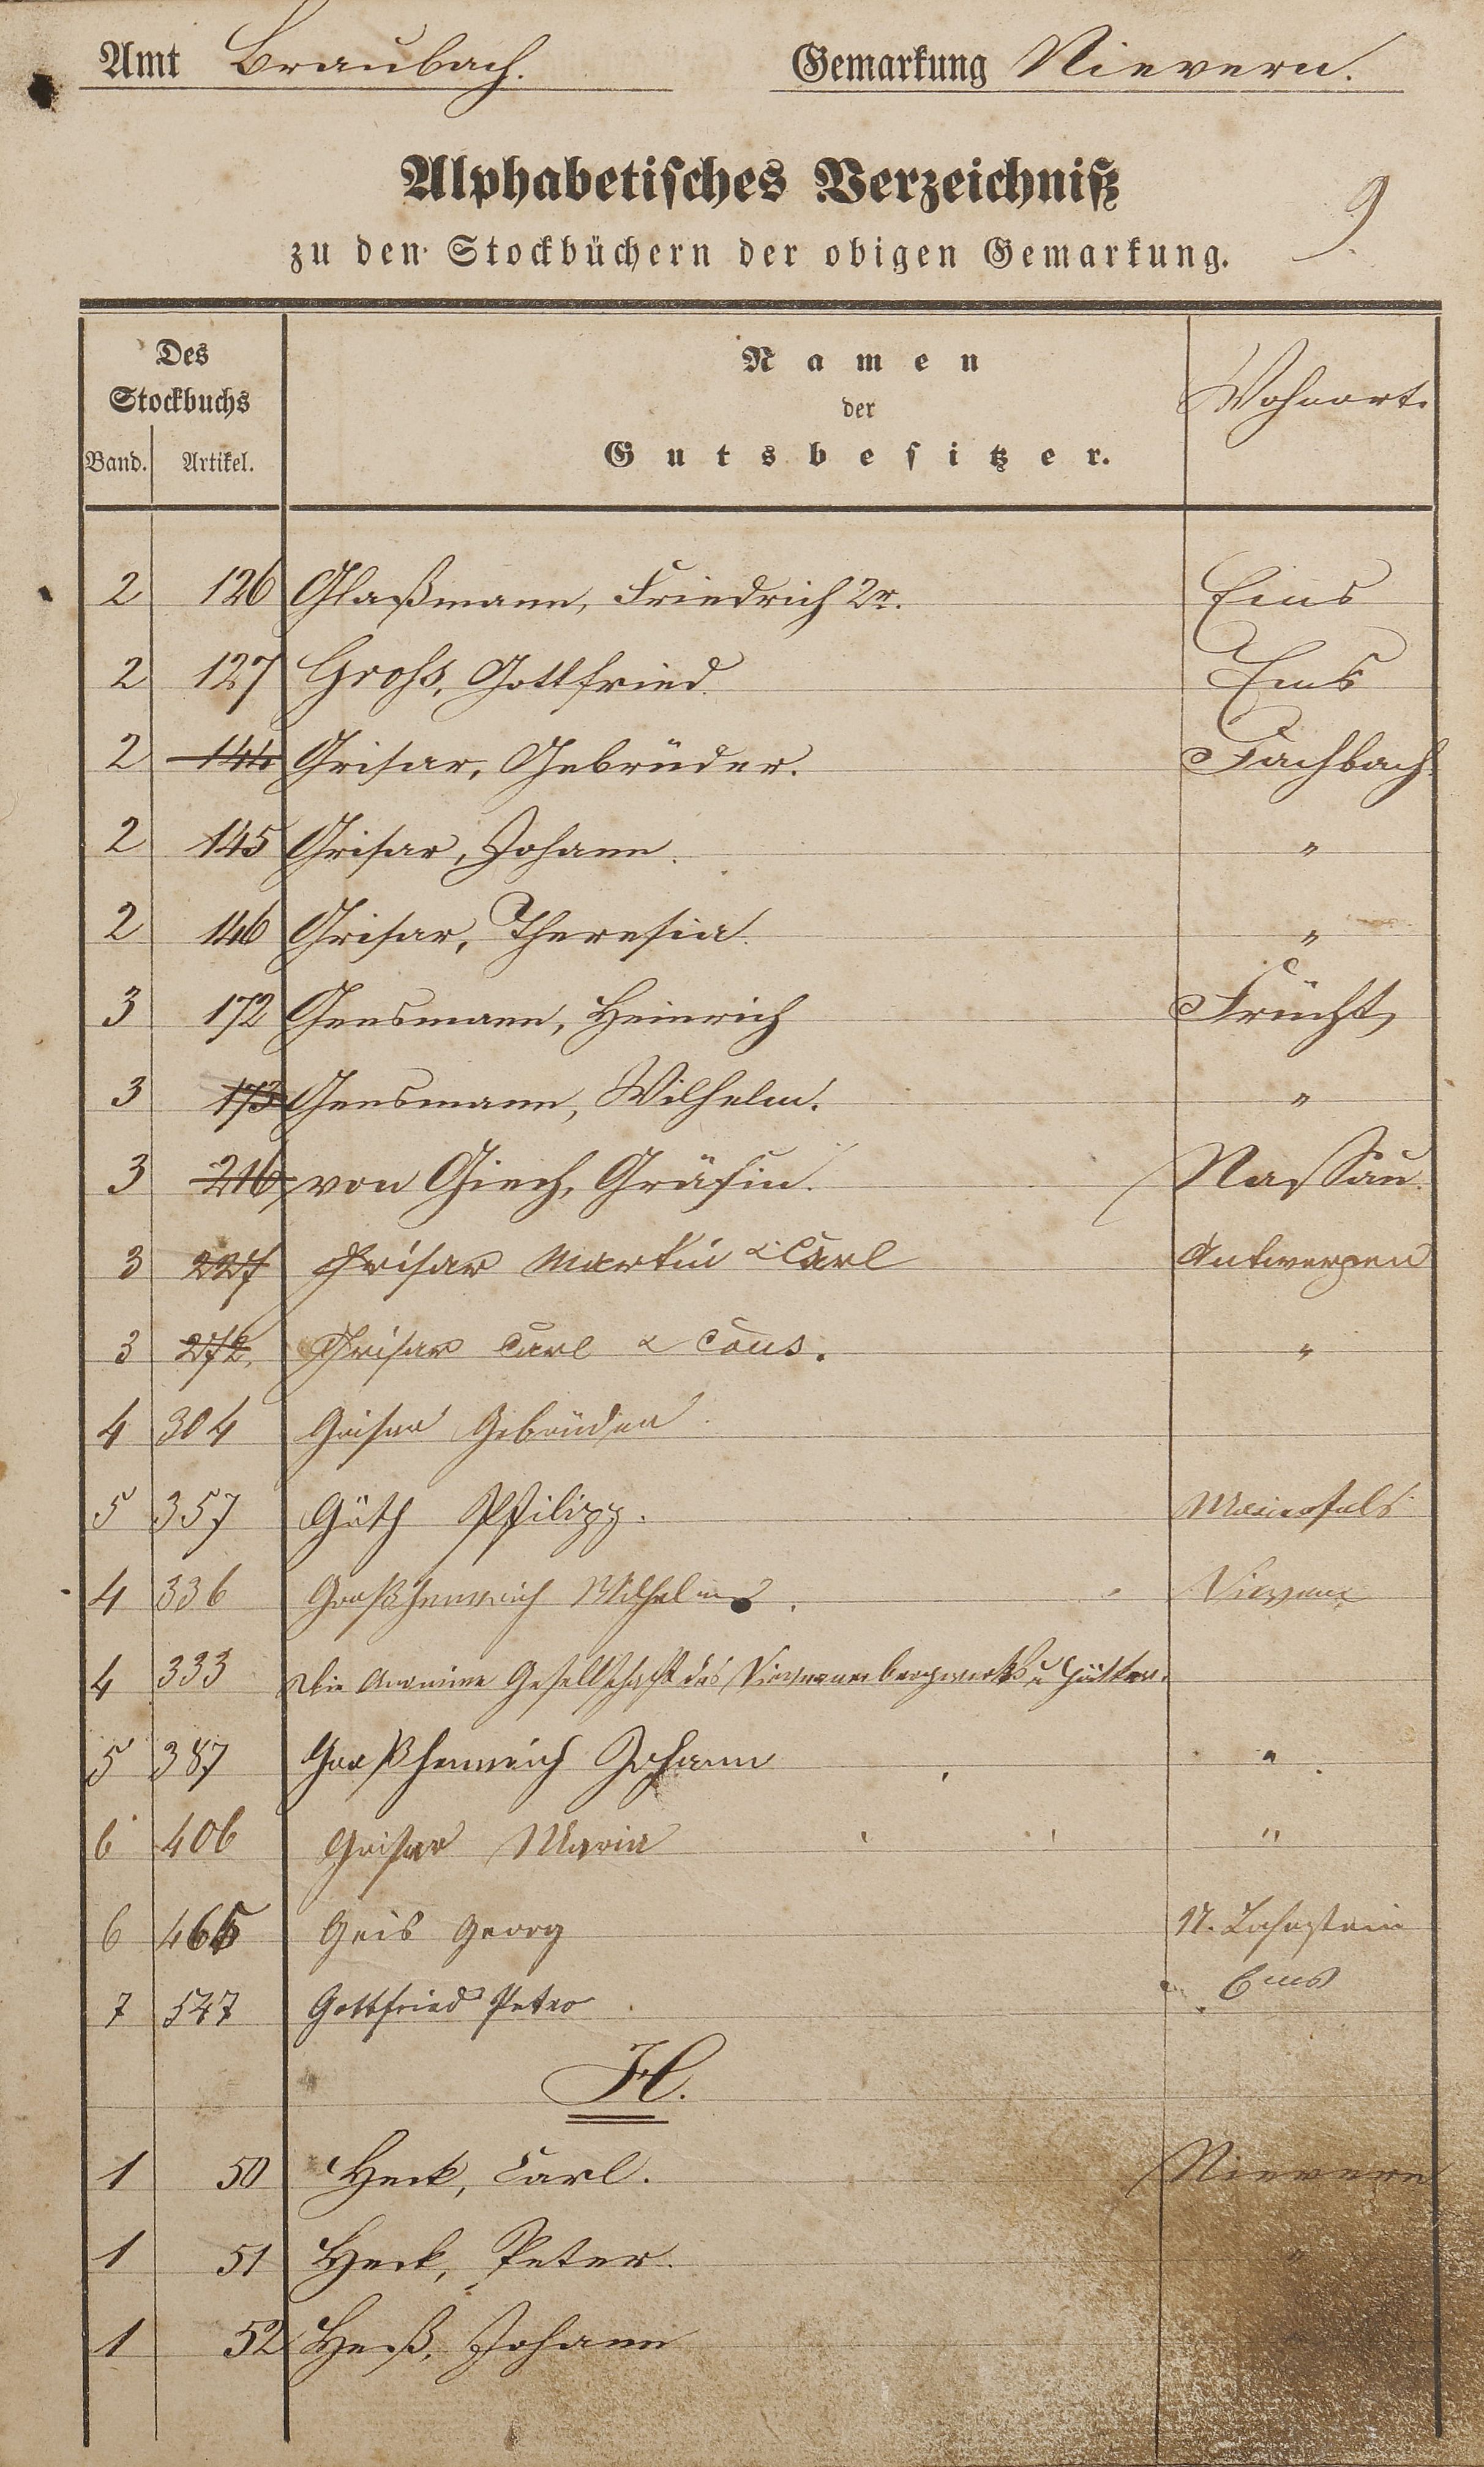 Amt Braubach. Gemarkung Nievern.
Alphabetisches Verzeichniß
9
zu den Stockbüchern der obigen Gemarkung.
Des Stockbuchs
Band. Artikel.
Namen
der
Gutsbesitzer.
Wohnort.
2 126 Glaßmann, Friedrich 2r. Ems
2 127 Groß, Gottfried. Ems
2 144 Grisar, Gebrüder. Fachbach.
2 145 Grisar, Johann. "
2 146 Grisar, Theresia. "
3 172 Gensmann, Heinrich Frücht
3 173 Gensmann, Wilhelm. "
3 216 von Giech, Gräfin. Nassau.
3 227 Grisar Martin & Carl Antwerpen
3 272. Grisar Carl & Cons. "
4 304 Grisar Gebrüder.
5 357 Güth Philipp.
4 336 Großhenrich Wilhelm. Nievern
4 333 Die Anonime Gesellschaft des Nievernerbergwerks u Hütten.
5 387 Großhenrich Johann "
6 406 Grisar Maria "
6 465 Geis Georg N. Lahnstein
7 547 Gottfried Peter Ems
H.
1 50 Heck, Carl. Nievern
1 51 Heck, Peter. "
1 52 Heß, Johann